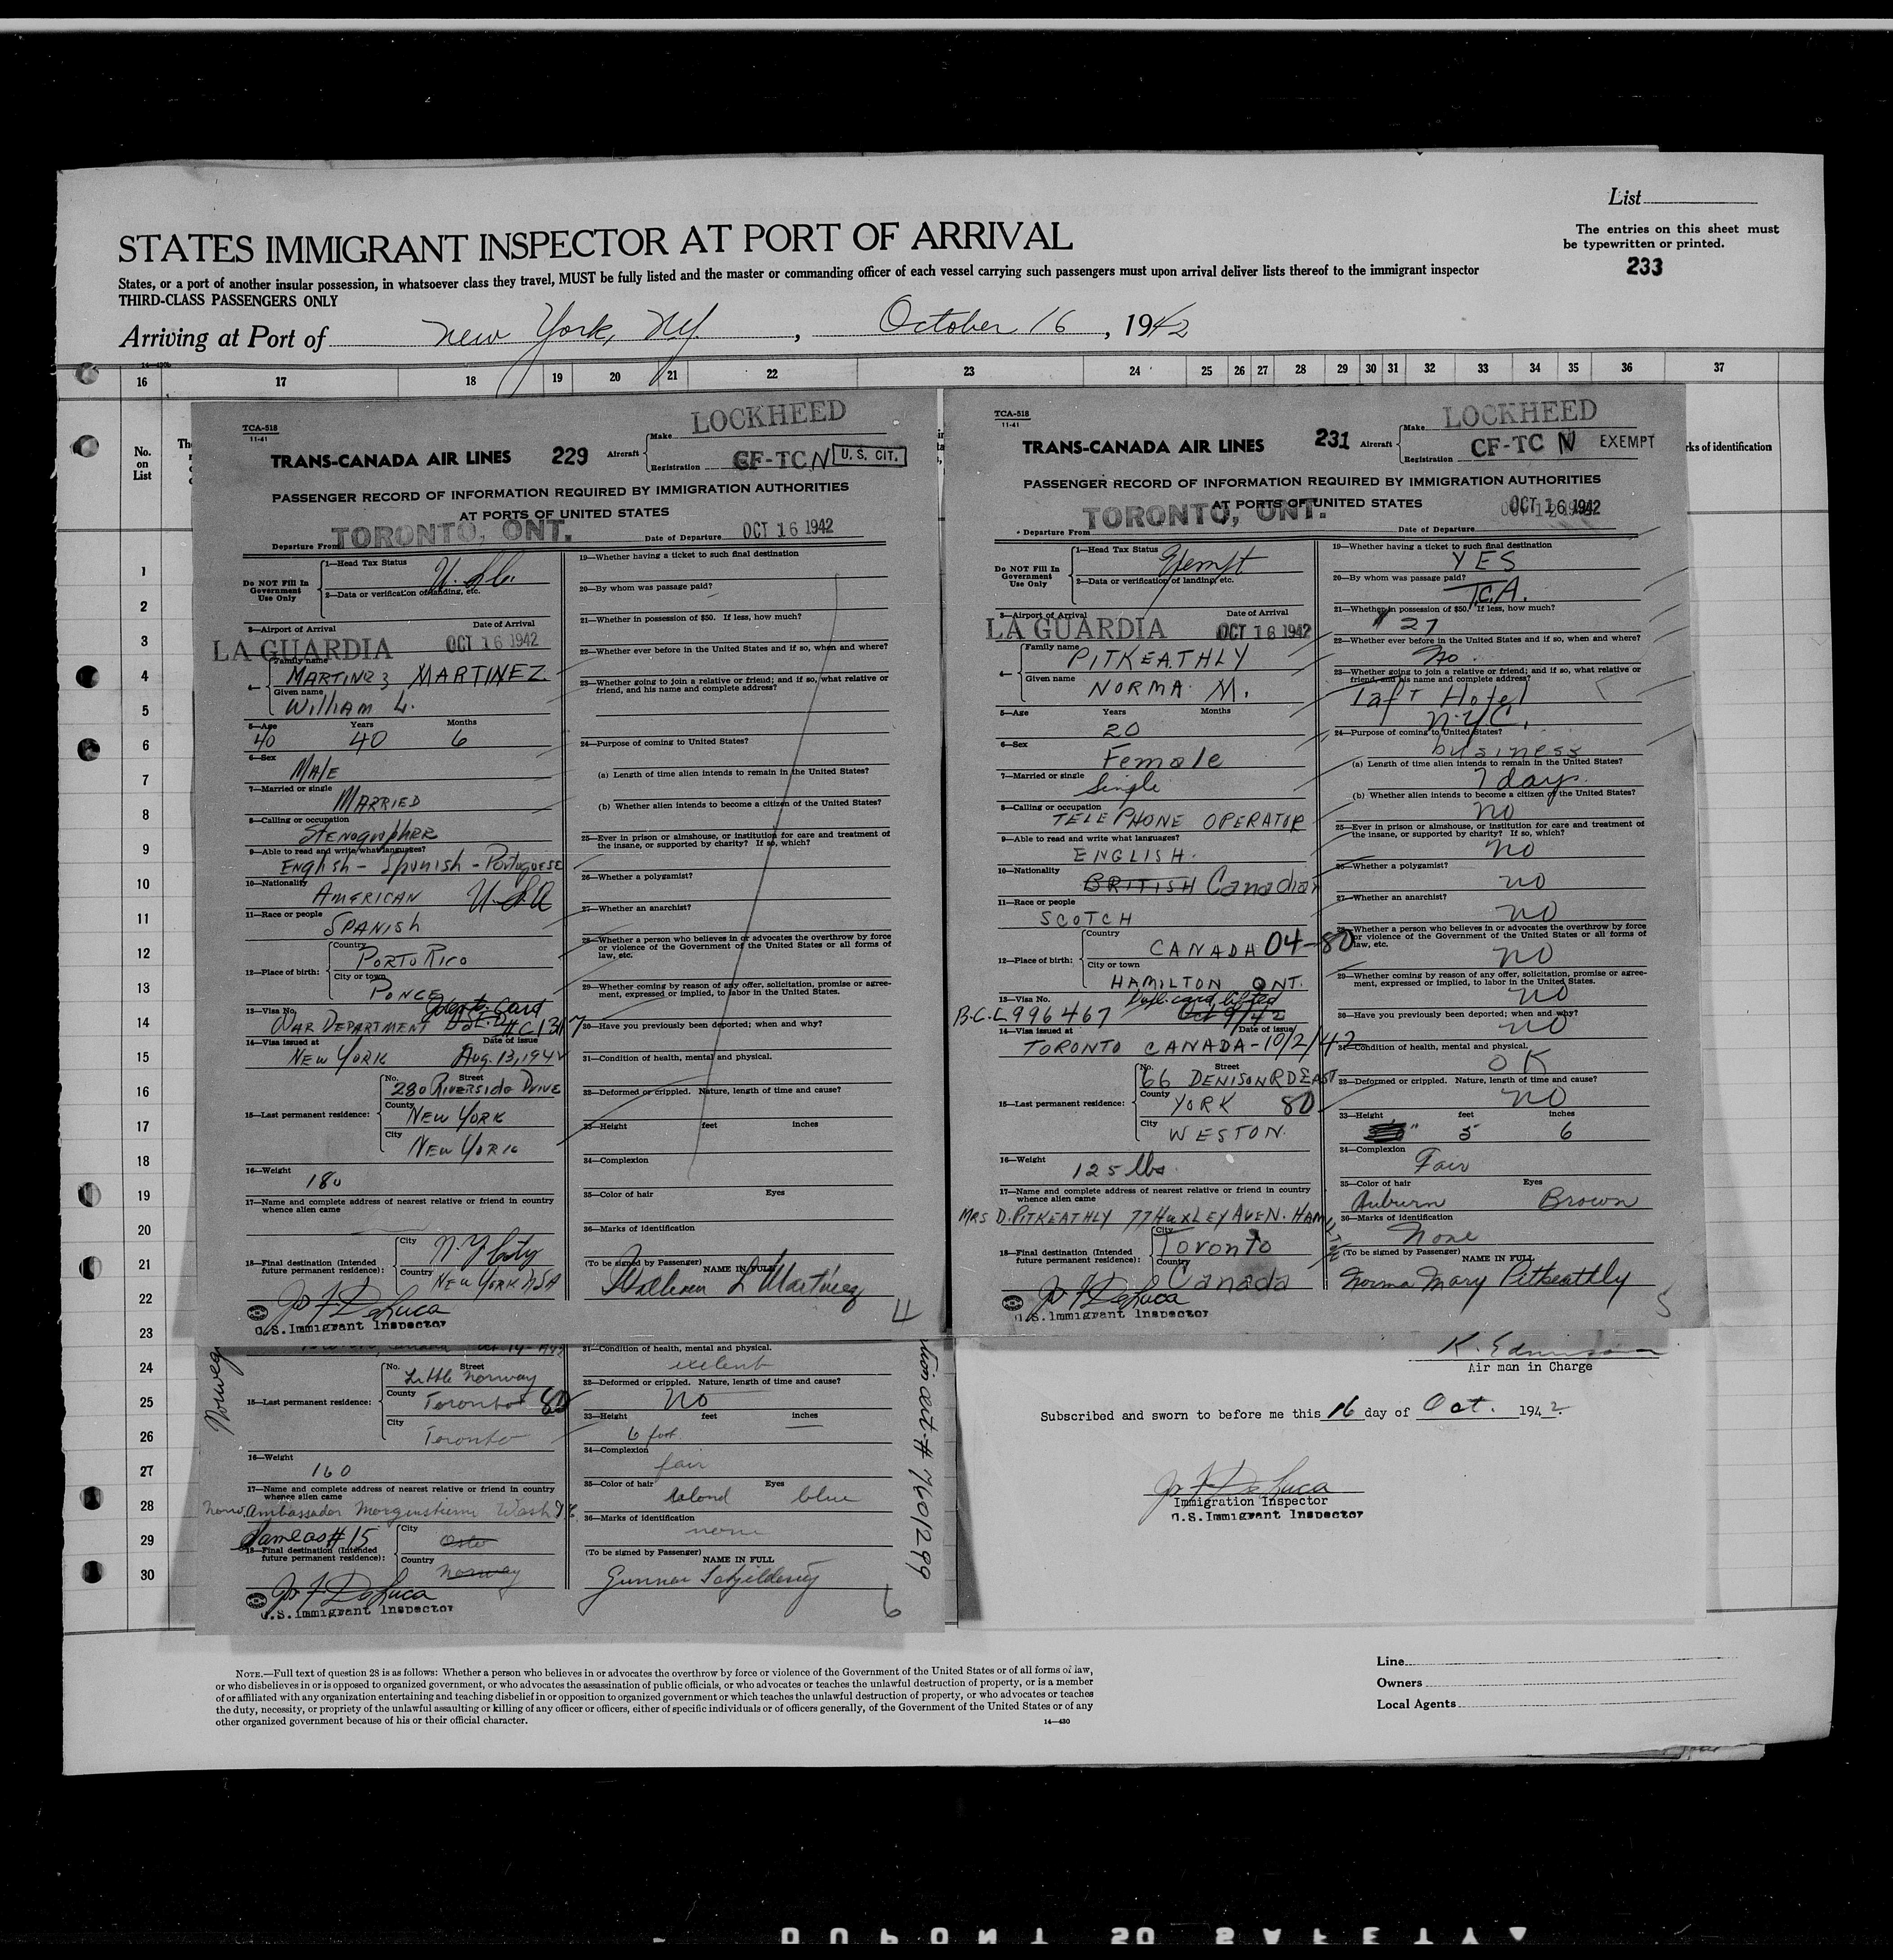 List
STATES IMMIGRANT INSPECTOR AT PORT OF ARRIVAL
The entries on this sheet must
be typewritten or printed.
233
States, or a port of another insular possession, in whatsoever class they travel, MUST be fully listed and the master or commanding officer of each vessel carrying such passengers must upon arrival deliver lists thereof to the immigrant inspector
THIRD-CLASS PASSENGERS ONLY
Arriving at Port of New York, NY. , October 16 , 1942
16 17 18 19 20 21 22 23 24 25 26 27 28 29 30 31 32 33 34 35 36 37
No.
on
List
rks of identification
1
2
3
4
5
6
7
8
9
10
11
12
13
14
15
16
17
18
19
20
21
22
23
24
25
26
27
28
29
30
TCA-518
11-41
TRANS-CANADA AIR LINES 229 Aircraft Make LOCKHEED
Registration CF-TCN U. S. CIT.
PASSENGER RECORD OF INFORMATION REQUIRED BY IMMIGRATION AUTHORITIES
AT PORTS OF UNITED STATES
Departure From TORONTO, ONT. Date of Departure OCT 16 1942
Do NOT Fill In
Government
Use Only
1—Head Tax Status
2—Data or verification of landing, etc.
3—Airport of Arrival Date of Arrival
LA GUARDIA OCT 16 1942
4— Family name MARTINEZ MARTINEZ
Given name William L.
5—Age Years Months
40 40 6
6—Sex
MALE
7—Married or single
MARRIED
8—Calling or occupation
STENOGRAPHER
9—Able to read and write what languages?
English - Spanish - Portuguese
10—Nationality
AMERICAN
11—Race or people
SPANISH
12—Place of birth: Country PORTO RICO
City or town PONCE
13—Visa No.
WAR DEPARTMENT
14—Visa issued at Date of issue
NEW YORK Aug. 13, 1942
15—Last permanent residence: No. Street 280 RIVERSIDE DRIVE
County NEW YORK
City NEW YORK
16—Weight
180
17—Name and complete address of nearest relative or friend in country
whence alien came
18—Final destination (Intended
future permanent residence): City N.Y. City
Country NEW YORK USA
U.S. Immigrant Inspector
19—Whether having a ticket to such final destination
20—By whom was passage paid?
21—Whether in possession of $50. If less, how much?
22—Whether ever before in the United States and if so, when and where?
23—Whether going to join a relative or friend; and if so, what relative or
friend, and his name and complete address?
24—Purpose of coming to United States?
(a) Length of time alien intends to remain in the United States?
(b) Whether alien intends to become a citizen of the United States?
25—Ever in prison or almshouse, or institution for care and treatment of
the insane, or supported by charity? If so, which?
26—Whether a polygamist?
27—Whether an anarchist?
28—Whether a person who believes in or advocates the overthrow by force
or violence of the Government of the United States or all forms of
law, etc.
29—Whether coming by reason of any offer, solicitation, promise or agree-
ment, expressed or implied, to labor in the United States.
30—Have you previously been deported; when and why?
31—Condition of health, mental and physical.
32—Deformed or crippled. Nature, length of time and cause?
33—Height feet inches
34—Complexion
35—Color of hair Eyes
36—Marks of identification
(To be signed by Passenger) NAME IN FULL
William L Martinez
4
TCA-518
11-41
TRANS-CANADA AIR LINES 231 Aircraft Make LOCKHEED
Registration CF-TC N EXEMPT
PASSENGER RECORD OF INFORMATION REQUIRED BY IMMIGRATION AUTHORITIES
AT PORTS OF UNITED STATES
Departure From TORONTO, ONT. Date of Departure OCT 16 1942
Do NOT Fill In
Government
Use Only
1—Head Tax Status Exempt
2—Data or verification of landing, etc.
3—Airport of Arrival Date of Arrival
LA GUARDIA OCT 16 1942
4— Family name PITKEATHLY
Given name NORMA M.
5—Age Years Months
20
6—Sex
Female
7—Married or single
Single
8—Calling or occupation
TELEPHONE OPERATOR
9—Able to read and write what languages?
ENGLISH.
10—Nationality
BRITISH Canadian
11—Race or people
SCOTCH
12—Place of birth: Country CANADA 04-80
City or town HAMILTON ONT.
13—Visa No. Dupl. card lifted
B.C.L 996467 Oct 9/42
14—Visa issued at Date of issue
TORONTO CANADA - 10/2/42
15—Last permanent residence: No. Street 66 DENISON RD EAST
County YORK 80
City WESTON.
16—Weight
125 lbs.
17—Name and complete address of nearest relative or friend in country
whence alien came
MRS D. PITKEATHLY 77 HUXLEY AVE N. HAMILTON
18—Final destination (Intended
future permanent residence): City Toronto
Country Canada
U.S. Immigrant Inspector
19—Whether having a ticket to such final destination
YES
20—By whom was passage paid?
T.C.A.
21—Whether in possession of $50. If less, how much?
$ 27
22—Whether ever before in the United States and if so, when and where?
No.
23—Whether going to join a relative or friend; and if so, what relative or
friend, and his name and complete address?
Taft Hotel
N.Y.C.
24—Purpose of coming to United States?
business
(a) Length of time alien intends to remain in the United States?
7 days.
(b) Whether alien intends to become a citizen of the United States?
no
25—Ever in prison or almshouse, or institution for care and treatment of
the insane, or supported by charity? If so, which?
no
26—Whether a polygamist?
no
27—Whether an anarchist?
no
28—Whether a person who believes in or advocates the overthrow by force
or violence of the Government of the United States or all forms of
law, etc.
no
29—Whether coming by reason of any offer, solicitation, promise or agree-
ment, expressed or implied, to labor in the United States.
no
30—Have you previously been deported; when and why?
no
31—Condition of health, mental and physical.
OK
32—Deformed or crippled. Nature, length of time and cause?
no
33—Height feet inches
5 6
34—Complexion
Fair
35—Color of hair Eyes
Auburn Brown
36—Marks of identification
None
(To be signed by Passenger) NAME IN FULL
Norma Mary Pitkeathly
5
15—Last permanent residence: No. Street Little Norway
County Toronto 80
City Toronto
16—Weight
160
17—Name and complete address of nearest relative or friend in country
whence alien came
Norw. Ambassador Morgenstierne Wash
Same as #15
18—Final destination (Intended
future permanent residence): City Oslo
Country Norway
U.S. Immigrant Inspector
31—Condition of health, mental and physical.
exelent
32—Deformed or crippled. Nature, length of time and cause?
NO
33—Height feet inches
6 foot
34—Complexion
fair
35—Color of hair Eyes
blond blue
36—Marks of identification
none
(To be signed by Passenger) NAME IN FULL
Gunnar
6
# 7601299
Air man in Charge
Subscribed and sworn to before me this 16 day of Oct. 1942.
Immigration Inspector
U.S. Immigrant Inspector
NOTE.—Full text of question 28 is as follows: Whether a person who believes in or advocates the overthrow by force or violence of the Government of the United States or of all forms of law,
or who disbelieves in or is opposed to organized government, or who advocates the assassination of public officials, or who advocates or teaches the unlawful destruction of property, or is a member
of or affiliated with any organization entertaining and teaching disbelief in or opposition to organized government or which teaches the unlawful destruction of property, or who advocates or teaches
the duty, necessity, or propriety of the unlawful assaulting or killing of any officer or officers, either of specific individuals or of officers generally, of the Government of the United States or of any
other organized government because of his or their official character.
14—430
Line
Owners
Local Agents
DUPONT SAFETY